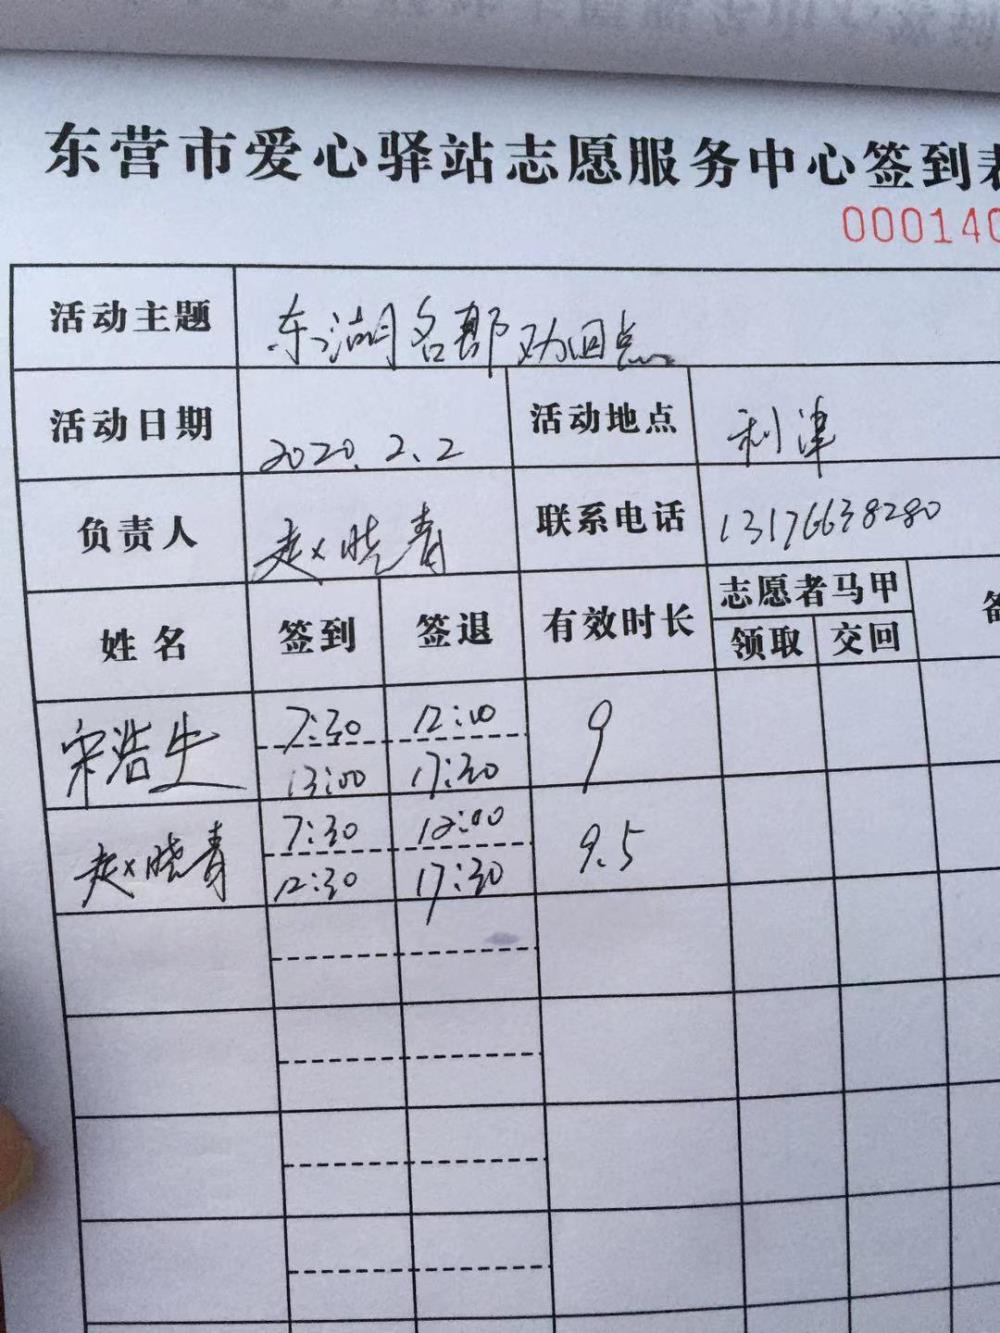 东营市爱心驿站志愿服务中心签到表
000140
活动主题 东湖名郡劝回点
活动日期 2020.2.2 活动地点 利津
负责人 赵晓青 联系电话 13176638280
姓名 签到 签退 有效时长 志愿者马甲 备
领取 交回
宋浩生 7:30 12:00 9
13:00 17:30
赵晓青 7:30 12:00 9.5
12:30 17:30